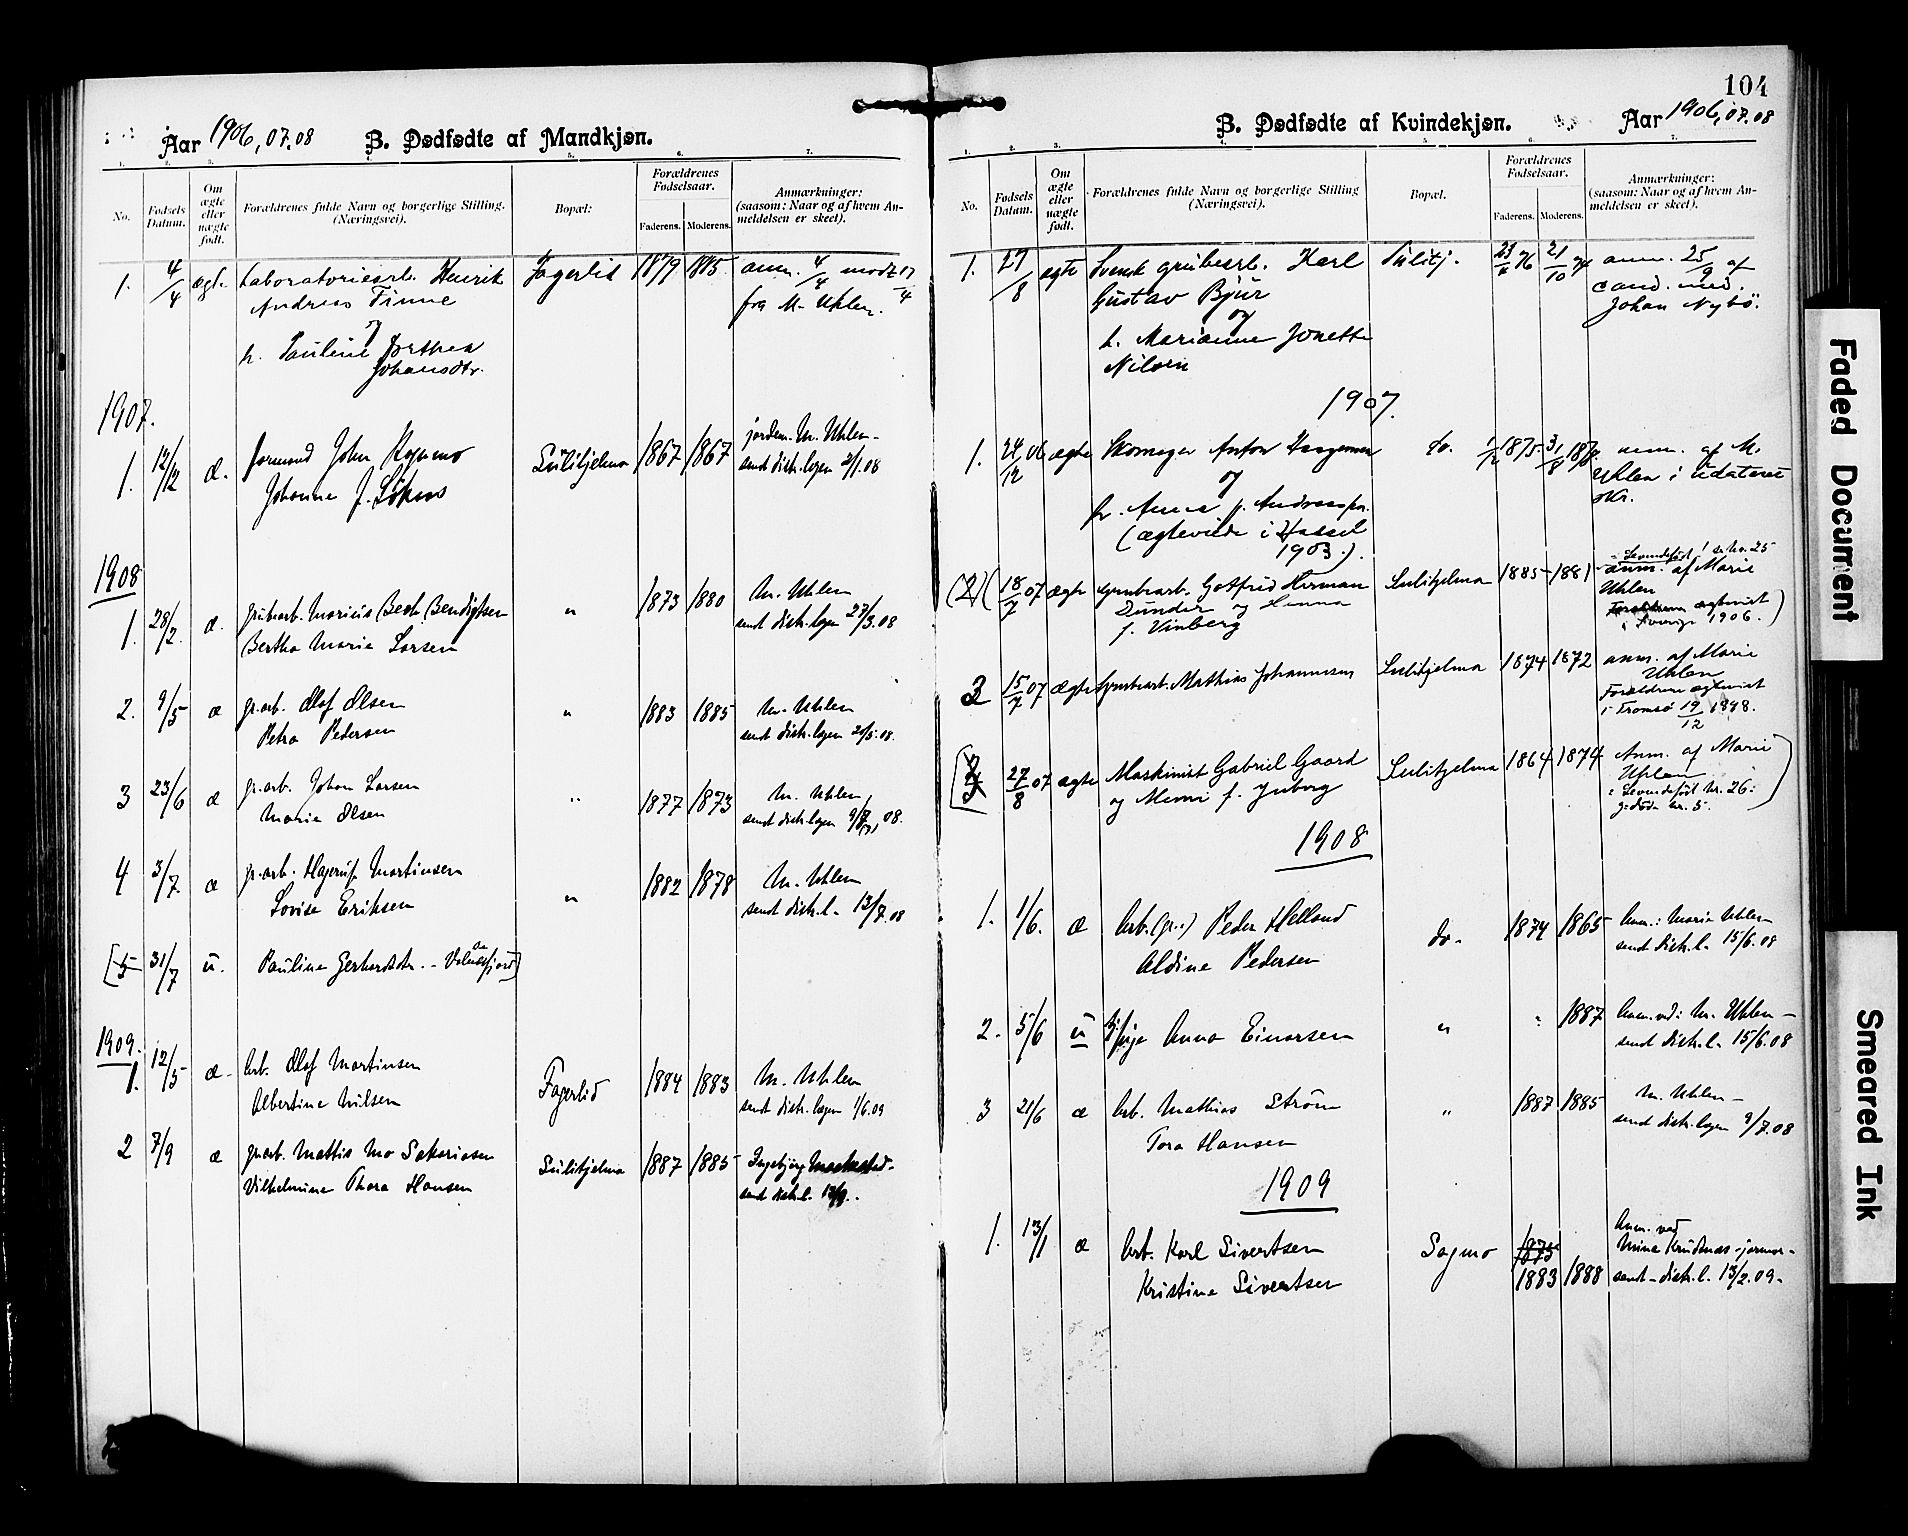 104
Aar 1906, 07.08
B. Dødfødte af Mandkjøn.
1. 2. 3. 5. 6. 7.
No.
Fødsels Datum.
Om ægte eller uægte født.
Forældrenes fulde Navn og borgerlige Stilling.
(Næringsvei).
Bopæl:
Forældrenes Fødselsaar.
Faderens. Moderens.
Anmærkninger:
(saasom: Naar og af hvem Anmeldelsen er skeet).
1. 4/4 ægte Laboratoriearb. Henrik Fagerlid 1879 1885 anm. 4/4 modt 17/4
Andreas Finne fra M. Uhlen.
og
h. Pauline Dorthea
Johansdtr.
1907.
1. 12/12 æ. formand John Rognmo Sulitjelma 1867 1867 jordm. M. Uhlen
Johanne f. sendt distr.lægen 2/1.08
1908
1. 28/2. æ. grubearb. Marius Berh. Bendigtsen " 1873 1880 M. Uhlen
Bertha Marie Larsen sendt distr.lægen 27/3.08
2. 9/5 æ gr.arb. Olaf Olsen " 1883 1885 M. Uhlen
Petra Pedersen sendt distr.lægen 20/5.08.
3 23/6 æ gr.arb. Johan Larsen " 1877 1873 M. Uhlen
Marie Olsen sendt distr.lægen 08.
4 3/7. æ gr.arb. Hagerup Martinsen " 1882 1878 M. Uhlen
Lovise Eriksen sendt distr.l. 13/7.08
[5 31/7 u. Pauline Gerhardsdtr. - Valnesfjord]
1909.
1. 12/5 æ arb. Olaf Martinsen Fagerlid 1884 1883 M. Uhlen
Albertine Nilsen sendt distr.lægen 1/6.09
2 7/9 æ gr.arb. Mattis Mo Sakariasen Sulitjelma 1887 1885 Ingebjørg
Vilhelmine Thora Hansen sendt distr.l.
B. Dødfødte af Kvindekjøn.
Aar 1906, 07.08
1. 2. 3. 4. 5. 6. 7.
No.
Fødsels Datum.
Om ægte eller uægte født.
Forældrenes fulde Navn og borgerlige Stilling
(Næringsvei).
Bopæl.
Forældrenes Fødselsaar.
Faderens. Moderens.
Anmærkninger:
(saasom: Naar og af hvem Anmeldelsen er skeet).
1. 27/8 ægte Svensk grubearb. Karl Sulitj. 76 21/10 74 anm. 25/9 af
Gustav Bjur cand. med.
og Johan Nybö.
h. Marianne Jonette
Nilsen
1907.
1. 24/12 06 ægte Skomager Anton do. 1/2 1875 31/8 anm. af M.
og Uhlen i udateret
h. Anna f. skr.
(ægteviede i Hassel
1903.).
(2) (18/7 07 ægte grubearb. Gotfrid Herman Sulitjelma 1885 1881 Levendefödt! se No. 25
Dunder og Hanna anm. af Marie
f. Vinberg Uhlen
Forældrene ægteviet
i Sverige 1906.)
2 15/7 07 ægte grubearb. Mathias Johannesen Sulitjelma 1874 1872 anm. af Marie
Uhlen
Forældrene ægteviet
i Tromsø 19/12 1898.
[3 27/8 07 ægte Maskinist Gabriel Gaard Sulitjelma 1864 1874 Anm. af Marie
og Memi f. Uhlen
: Levendefödt nr. 26:
g: död: nr. 5.
1908
1. 1/6. æ Arb. (gr..) Peder Helland do. 1874 1865 Anm.: Marie Uhlen
Aldine Pedersen sendt distr.l. 15/6.08
2. 5/6 u pige Anna Einarsen " " 1887 Anm. ved: M. Uhlen
sendt distr.l. 15/6.08
3 21/6 æ Arb. Mathias Strøm " 1887 1885 M. Uhlen
Tora Hansen sendt distr.lægen 9/7.08
1909
1. 13/1 æ Arb. Karl Sivertsen Sagmo 1875 Anm. ved
Kristine Sivertsen 1883 1888 sendt distr.l. 13/2.09
Faded Document
Smeared Ink